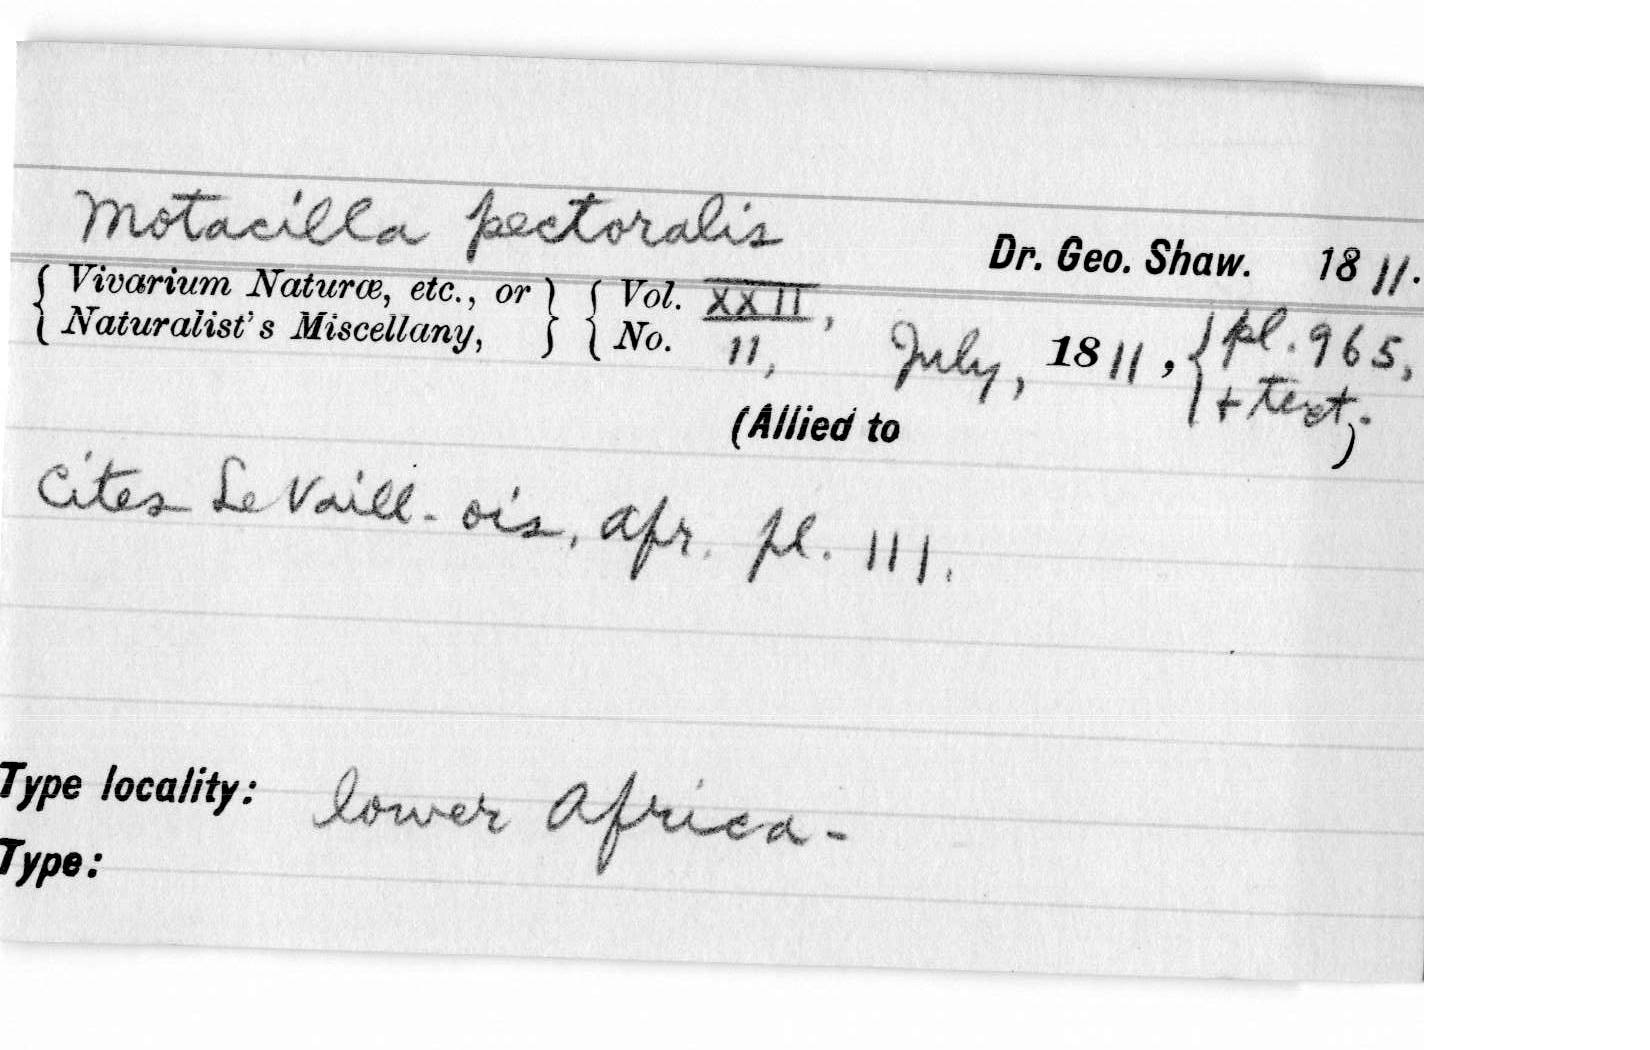 Motacilla pectoralis Dr. Geo. Shaw. 1811.
{ Vivarium Naturæ, etc., or } { Vol. XXII,
{ Naturalist's Miscellany, } { No. 11, July, 1811, { pl. 965,
+ text.
(Allied to )
Cites Le Vaill. ois. Afr. pl. 111.
Type locality: lower Africa -
Type: